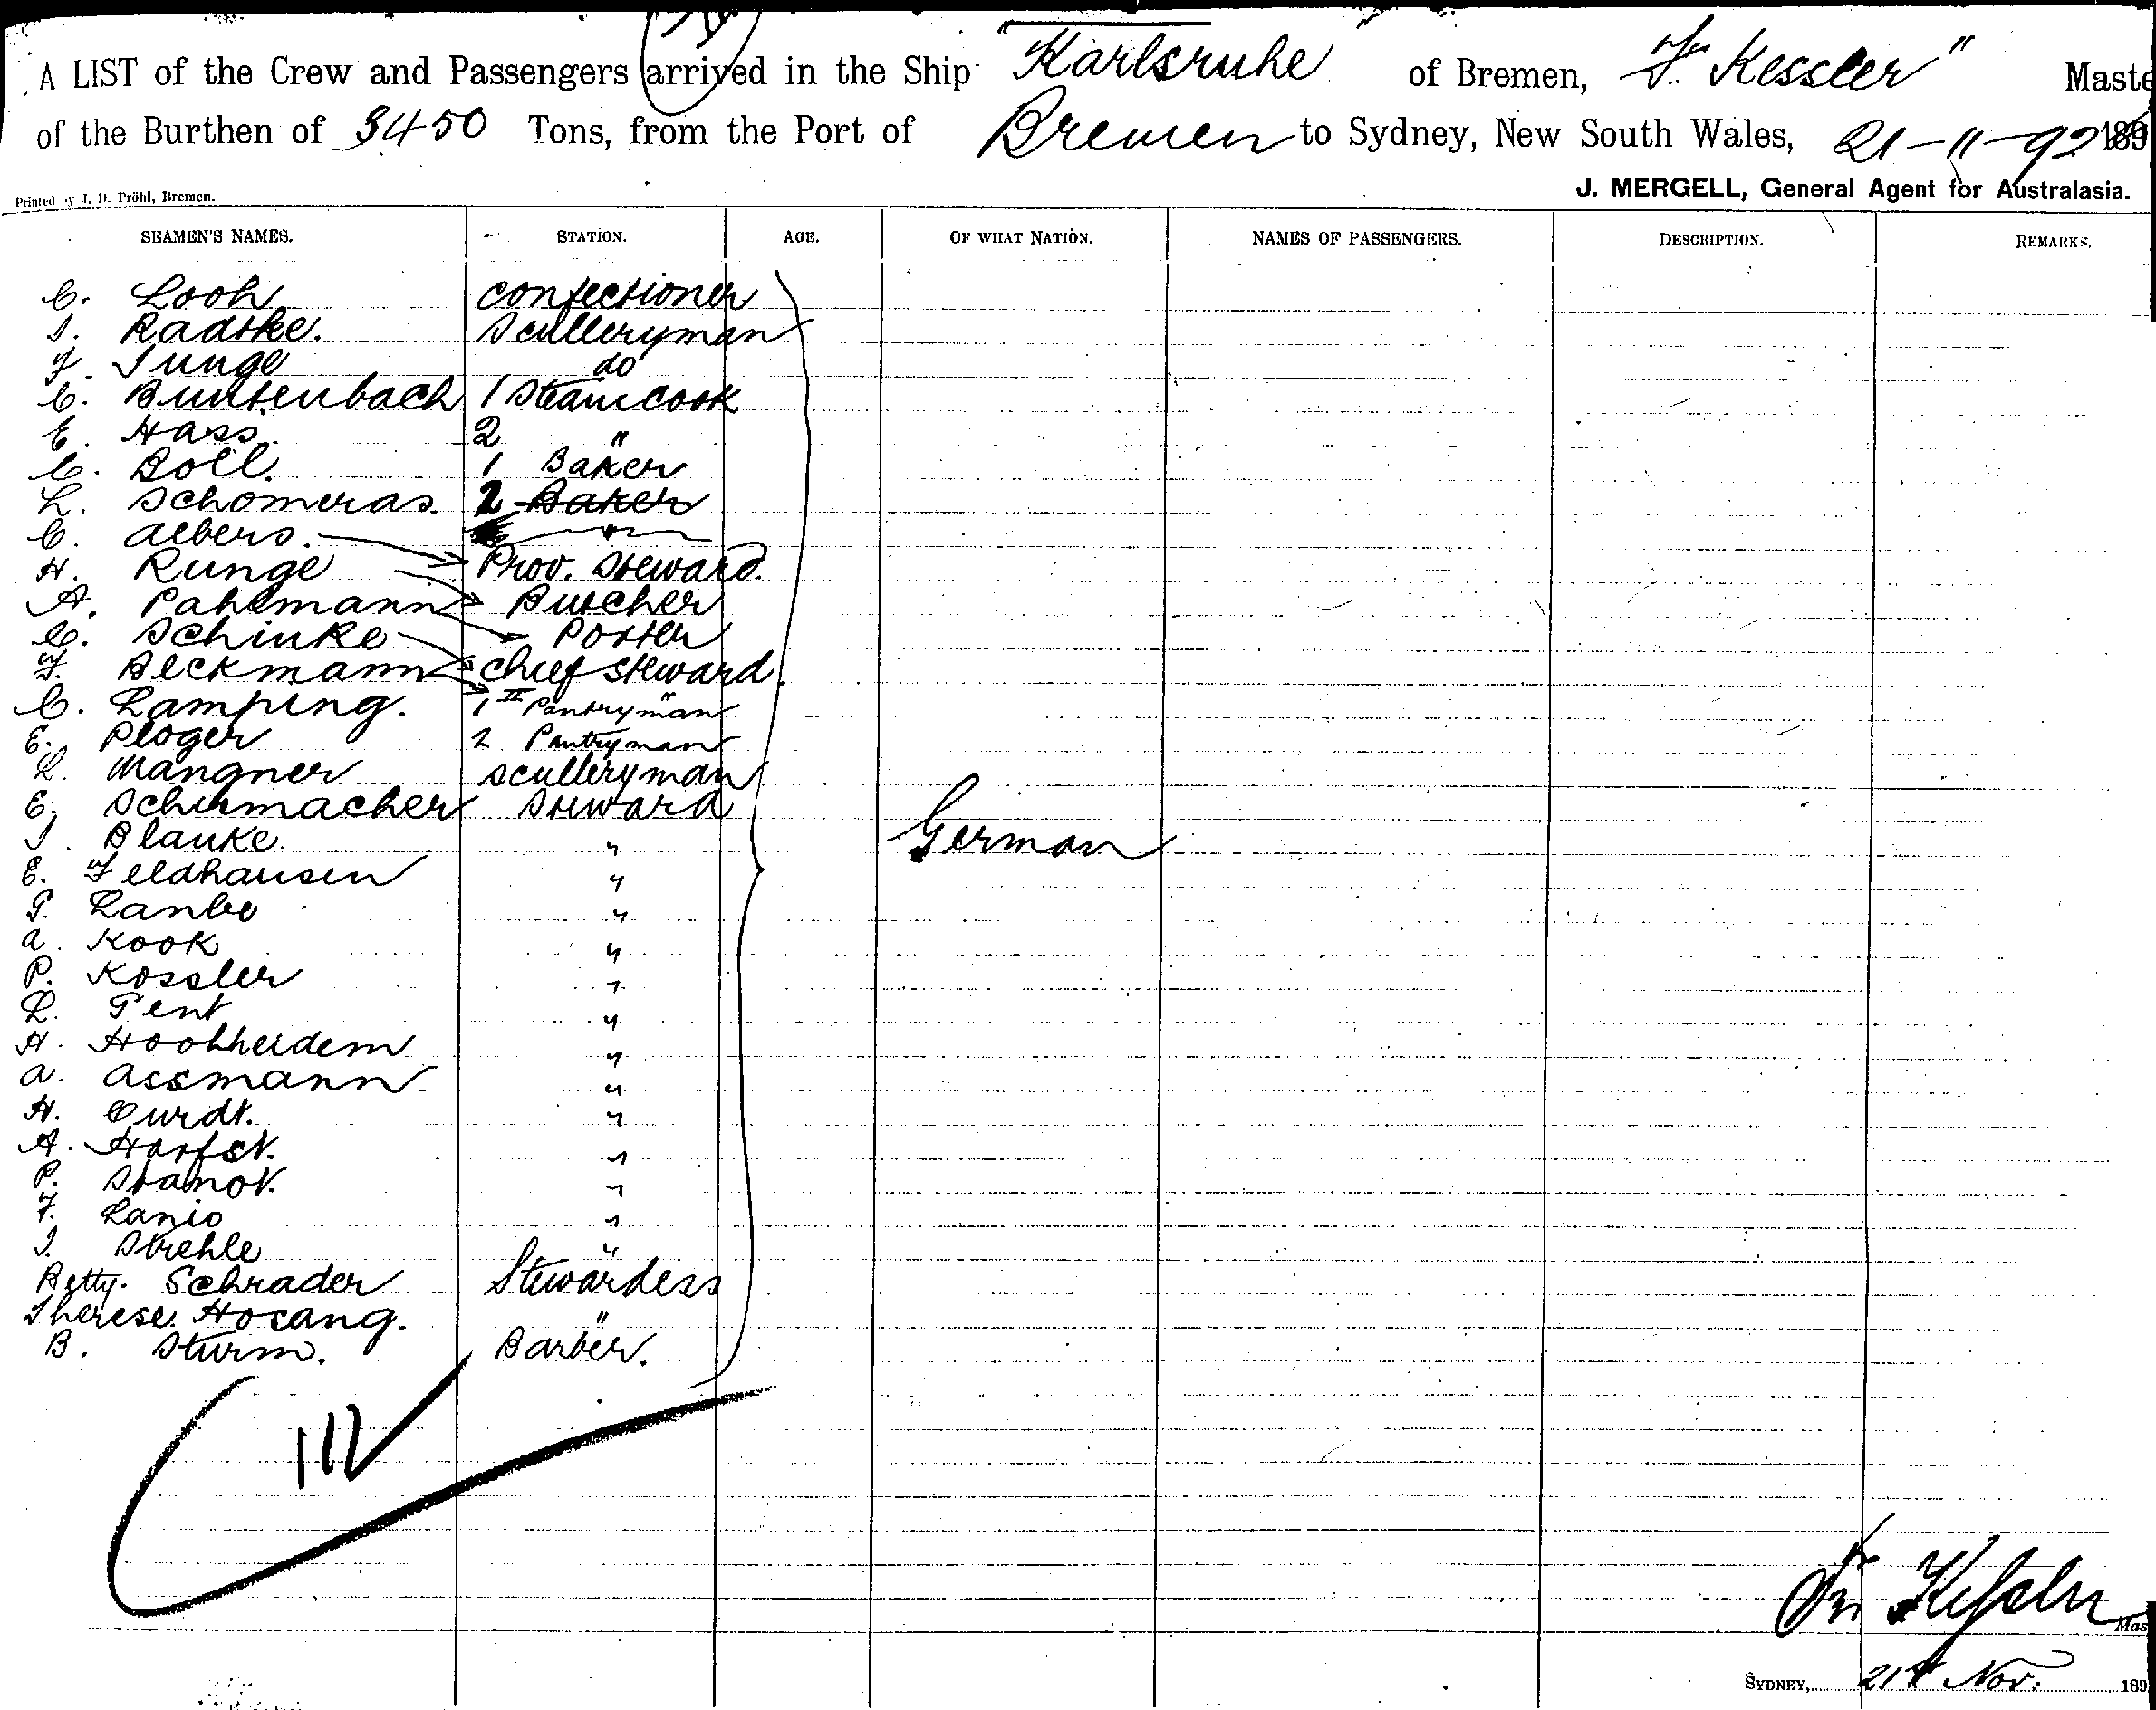 A LIST of the Crew and Passengers arrived in the Ship "Karlsruhe of Bremen, F. Kessler" Maste
of the Burthen of 3450 Tons, from the Port of Bremen to Sydney, New South Wales, 21-11-92 189
Printed by J. H. Pröhl, Bremen. J. MERGELL, General Agent for Australasia.
SEAMEN'S NAMES. STATION. AGE. OF WHAT NATION. NAMES OF PASSENGERS. DESCRIPTION. REMARKS.
C. Looh confectioner
J. Radtke. Sculleryman
F. Junge do
C. Buntenbach 1 Steamcook
E. Hass. 2 "
C. Boll. 1 Baker
L. Schomeras. 2 Baker
C. Albers.
H. Runge Prov. Steward.
A. Pahlmann Butcher
C. Schinke Porter
F. Beckmann chief steward.
C. Lamping. 1 II Pantryman
E. Ploger 2 Pantryman
L. Mangner sculleryman
E. Schumacher Steward
J. Blanke " German
E. Feldhausen "
G. Lanbe "
A. Kook "
P. Kossler "
L. Gent "
H. Hoohheidem "
A. Assmann "
H. Curdt. "
A. Harfst. "
P. Stamot. "
F. Lanio "
J. Strehle "
Betty. Schrader Stewardess
Therese. Hocang. "
B. Sturm. Barber.
Fr Kessler Mas
SYDNEY, 21st Nov. 189